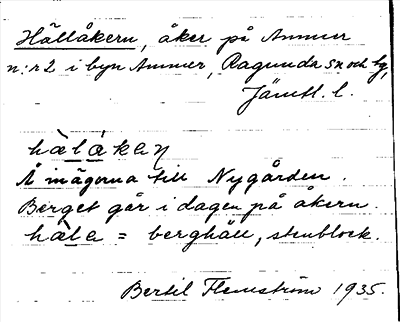 Hällåkern, åker på Ammer
n:r 2 i byn Ammer, Ragunda sn och tg,
Jämtl. l.
hä̀lákeɳ
Å inägorna till Nygården.
Berget går i dagen på åkern.
hä̀la = berghäll, stenblock.
Bertil Flemström 1935.